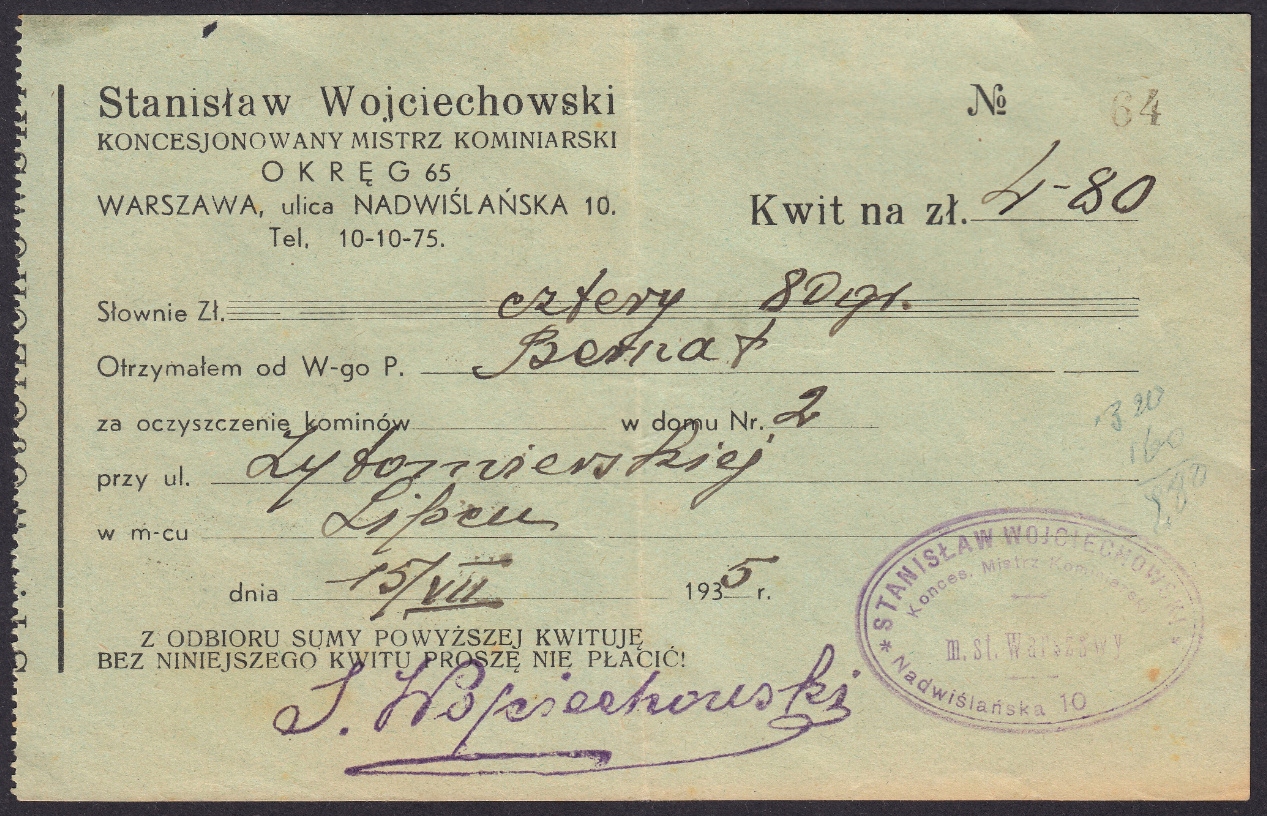 Stanisław Wojciechowski
KONCESJONOWANY MISTRZ KOMINIARSKI
OKRĘG 65
WARSZAWA, ulica NADWIŚLAŃSKA 10.
Tel. 10-10-75.
№ 64
Kwit na zł. 4-80
Słownie Zł. cztery 80 gr.
Otrzymałem od W-go P. Bernat
za oczyszczenie kominów w domu Nr. 2
przy ul. Żytomierskiej
w m-cu Lipcu
dnia 15/VII 1935 r.
Z ODBIORU SUMY POWYŻSZEJ KWITUJĘ
BEZ NINIEJSZEGO KWITU PROSZĘ NIE PŁACIĆ!
S. Wojciechowski
320
160
480
* STANISŁAW WOJCIECHOWSKI *
Konces. Mistrz Kominiarski
m. st. Warszawy
Nadwiślańska 10